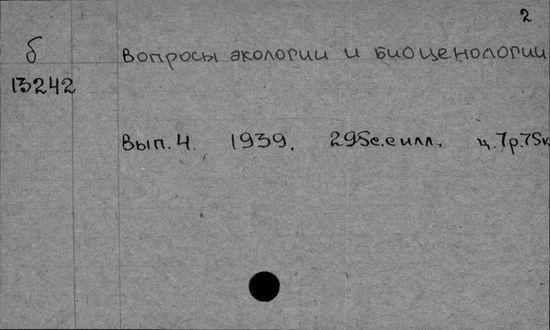 2
б Вопросы экологии и биоценологии
13242
Вып. 4. 1939. 295с.с илл. ц. 7р.75к